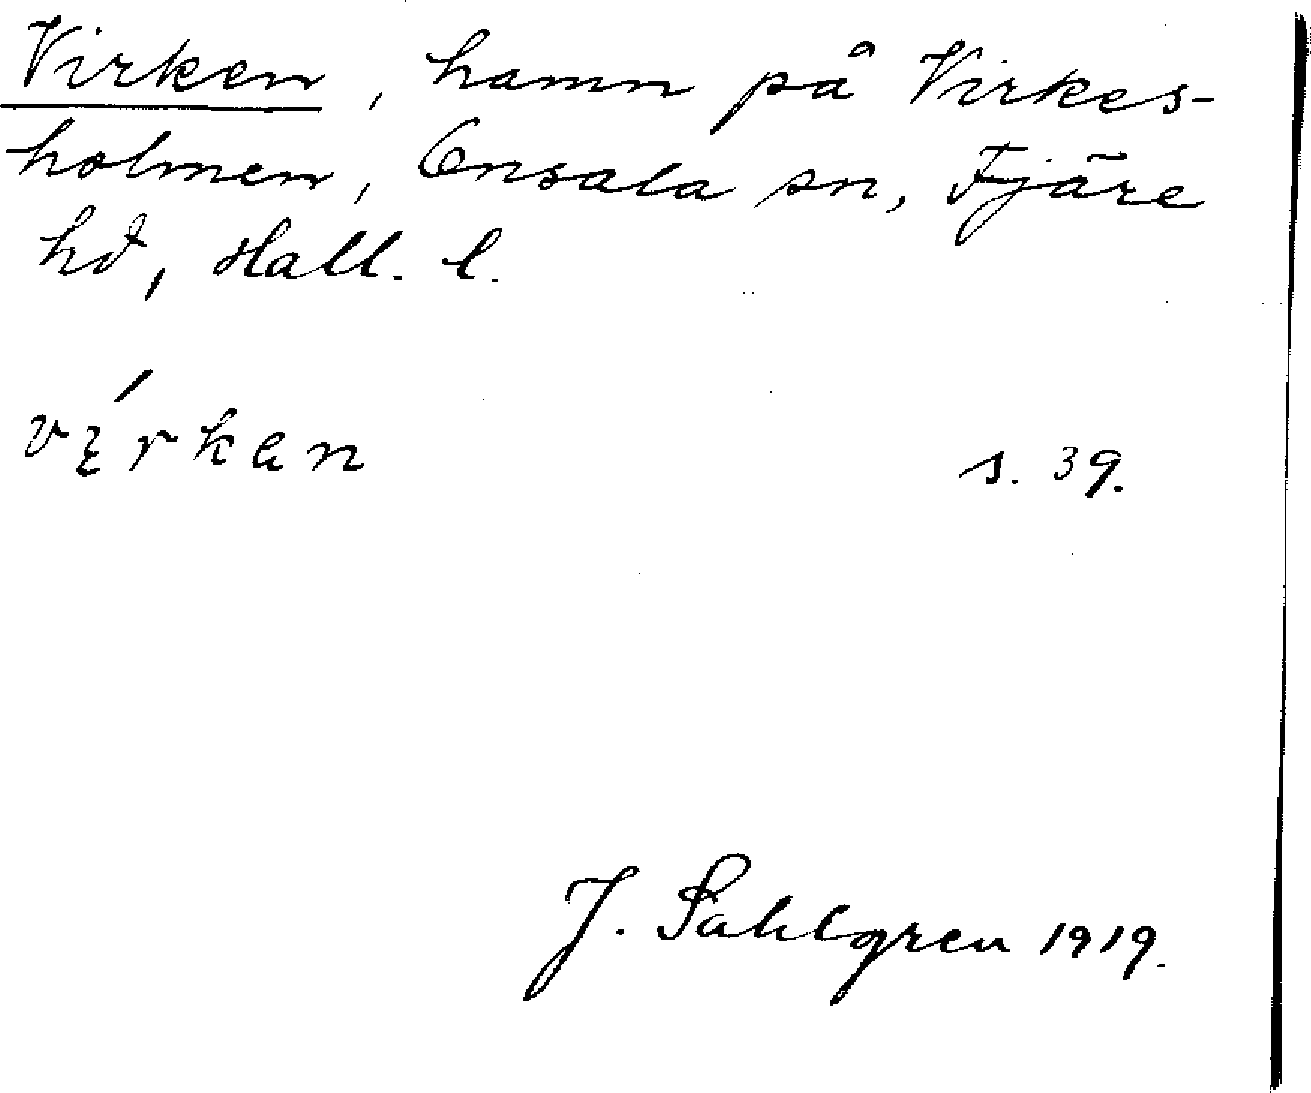 Virken, hamn på Virkes-
holmen, Onsala sn, Fjäre
hd, Hall. l.
s. 39.
J. Sahlgren 1919.